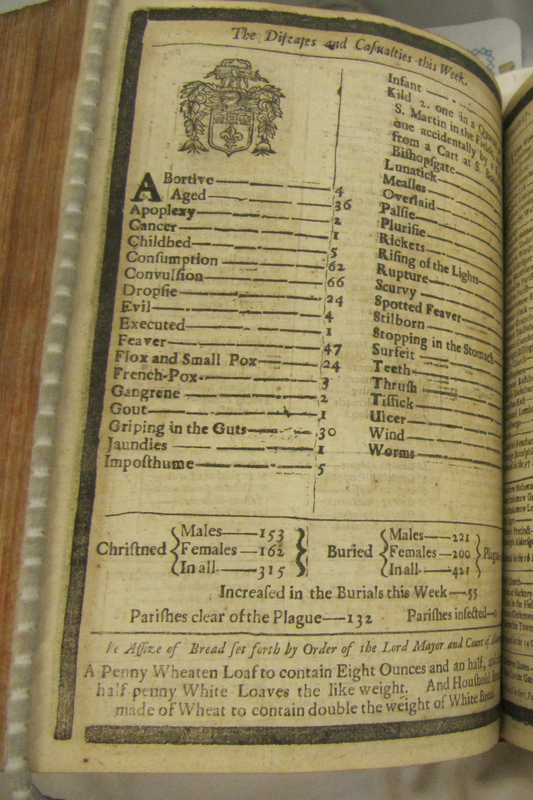 The Diſeaſes and Caſualties this Week.
ABortive 4
Aged 36
Apoplexy 2
Cancer 1
Childbed 5
Conſumption 62
Convulſion 66
Dropſie 24
Evil 4
Executed 1
Feaver 47
Flox and Small Pox 24
French-Pox 3
Gangrene 2
Gout 1
Griping in the Guts 30
Jaundies 1
Impoſthume 5
Infant
Kild 2. one in a
S. Martin in the Fields,
one accidentally by a
from a Cart at S.
Biſhopſgate
Lunatick
Meaſles
Overlaid
Palſie
Pluriſie
Rickets
Riſing of the Lights
Rupture
Scurvy
Spotted Feaver
Stilborn
Stopping in the Stomach
Surfeit
Teeth
Thruſh
Tiſſick
Ulcer
Wind
Worms
Chriſtned { Males—153 Females—162 In all—315 }
Buried { Males—221 Females—200 In all—421 } Plague
Increaſed in the Burials this Week—55
Pariſhes clear of the Plague—132 Pariſhes infected—0
he Aſſize of Bread ſet forth by Order of the Lord Mayor and Court of
A Penny Wheaten Loaf to contain Eight Ounces and an half, and
half penny White Loaves the like weight. And Houſhold
made of Wheat to contain double the weight of White Bread.